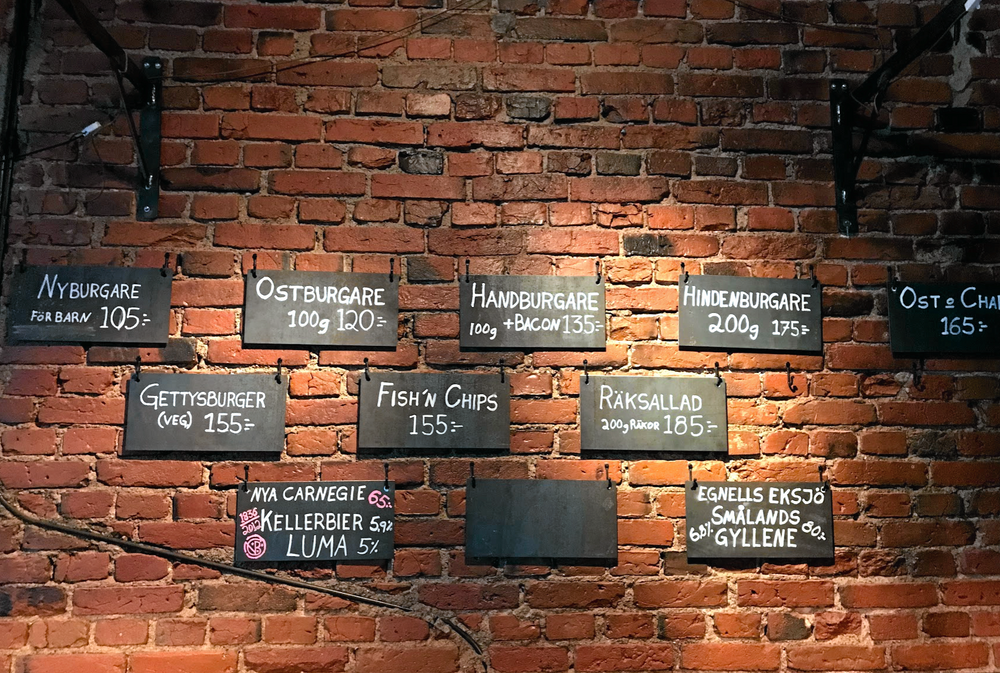 NYBURGARE
FÖR BARN 105:-
OSTBURGARE
100g 120:-
HANDBURGARE
100g +BACON 135:-
HINDENBURGARE
200g 175:-
OST & CHA
165:-
GETTYSBURGER
(VEG) 155:-
FISH'N CHIPS
155:-
RÄKSALLAD
200g RÄKOR 185:-
NYA CARNEGIE 65:-
1836
2012
KELLERBIER 5,9%
NCB
LUMA 5%
EGNELLS EKSJÖ
SMÅLANDS
6.8% GYLLENE 80:-